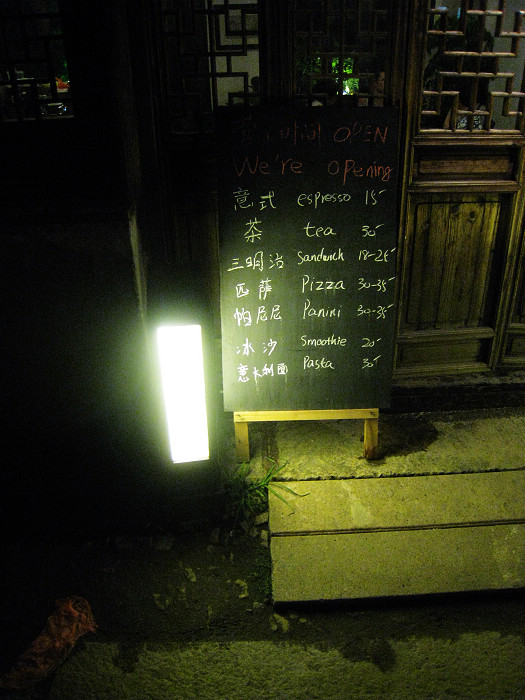 时间 OPEN
We're opening
意式 espresso 15
茶 tea 30
三明治 Sandwich 18-25
匹萨 Pizza 30-35
帕尼尼 Panini 30-35
冰沙 Smoothie 20
意大利面 Pasta 30